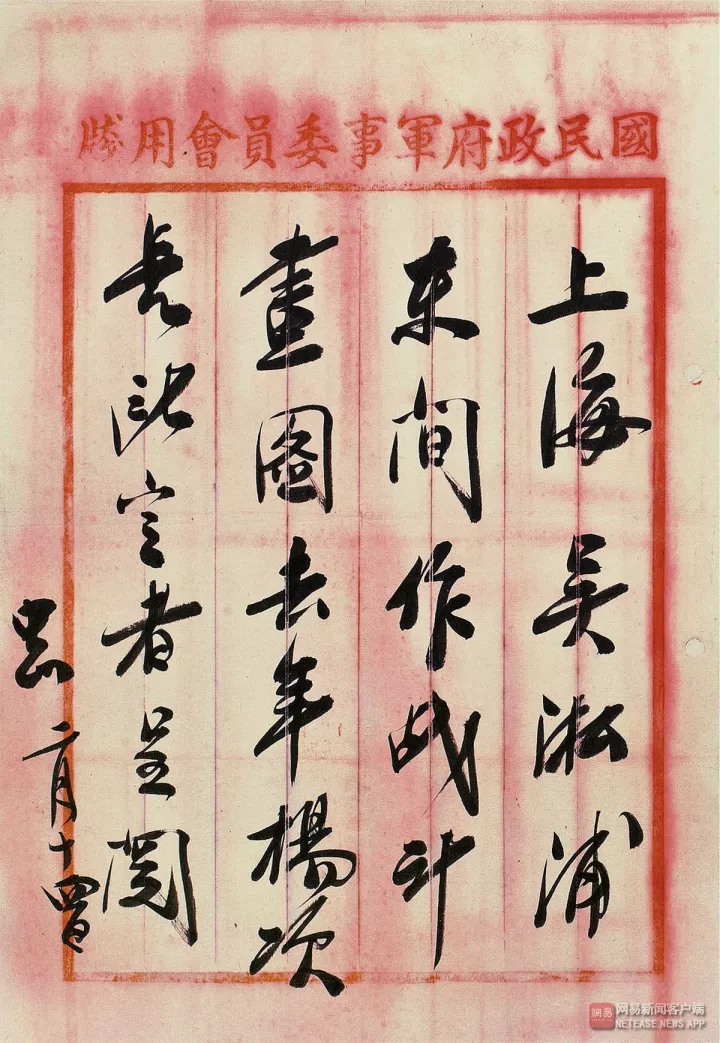 國民政府軍事委員會用牋
上海吳淞浦
東間作战计
畫圖去年楊次
長所定者呈閱
中正
二月十四日
网易新闻客户端
NETEASE NEWS APP